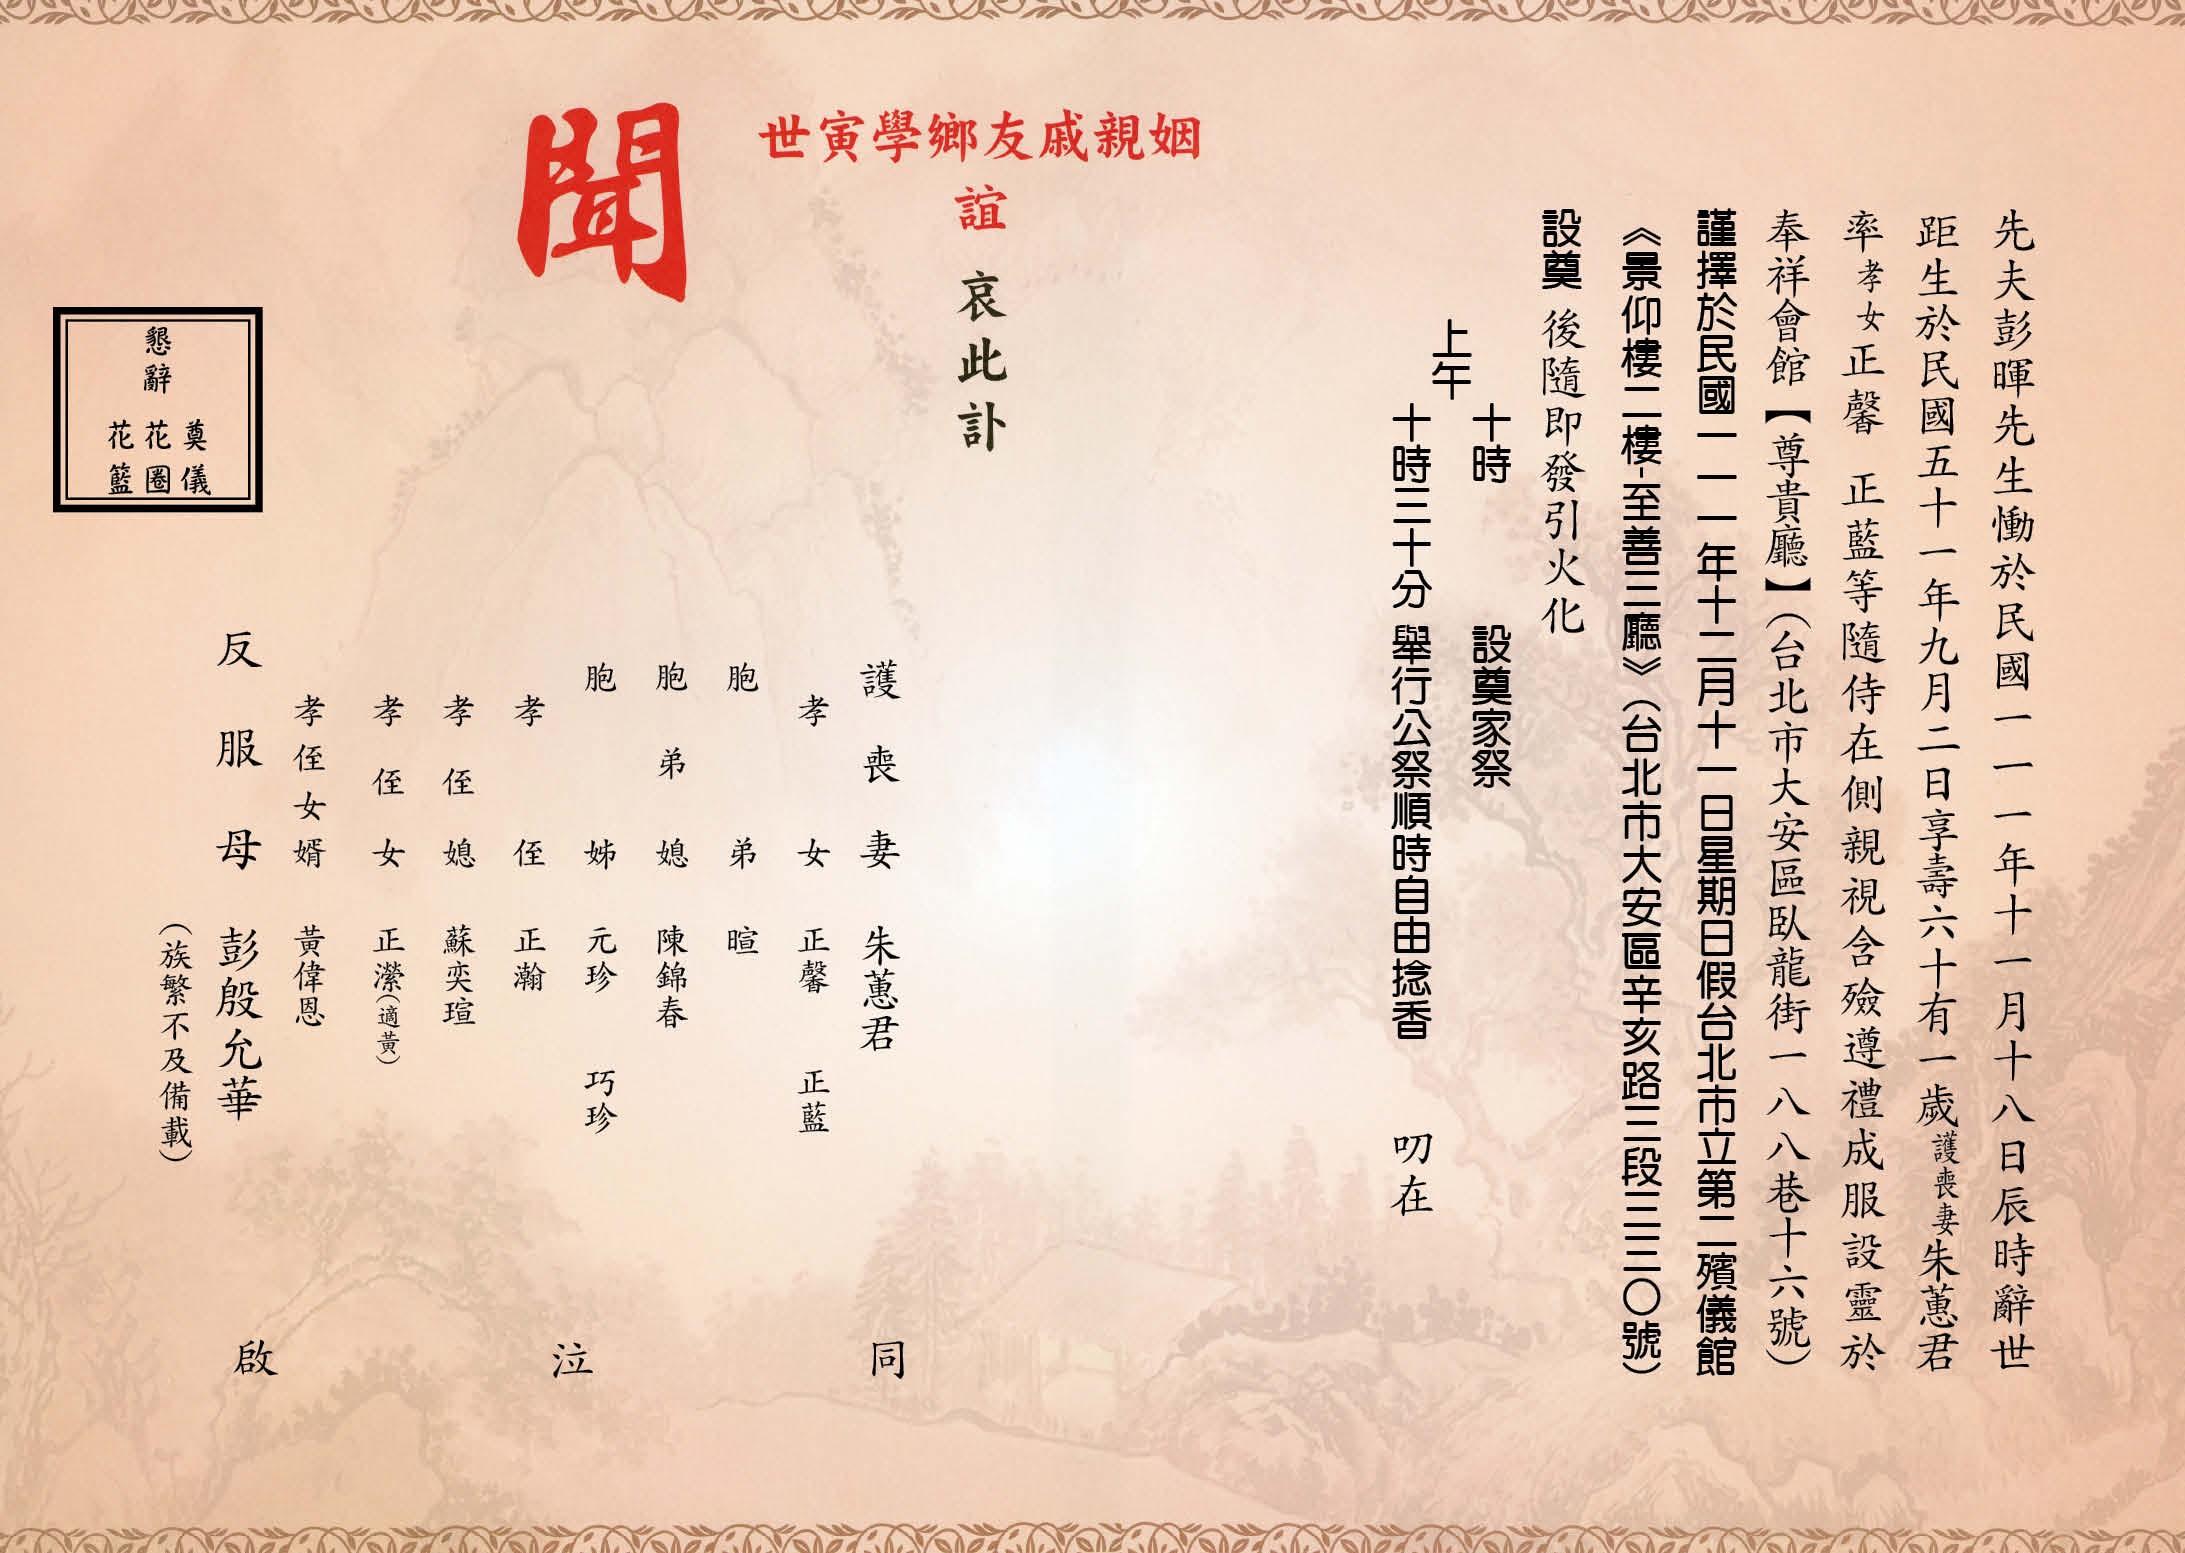 先夫彭暉先生慟於民國一一一年十一月十八日辰時辭世
距生於民國五十一年九月二日享壽六十有一歲護喪妻朱蕙君
率孝女正馨 正藍等隨侍在側親視含殮遵禮成服設靈於
奉祥會館【尊貴廳】(台北市大安區臥龍街一八八巷十六號)
謹擇於民國一一一年十二月十一日星期日假台北市立第二殯儀館
《景仰樓二樓-至善三廳》(台北市大安區辛亥路三段三三〇號)
設奠 後隨即發引火化
上午
十時 設奠家祭
十時三十分 舉行公祭順時自由捻香 叨在
姻親戚友鄉學寅世
誼 哀此訃
聞
護喪妻 朱蕙君
孝女 正馨 正藍
胞弟 暄
胞弟媳 陳錦春
胞姊 元珍 巧珍
孝侄 正瀚
孝侄媳 蘇奕瑄
孝侄女 正瀠(適黃)
孝侄女婿 黃偉恩
反服母 彭殷允華
(族繁不及備載)
同 泣 啟
懇辭
奠儀
花圈
花籃